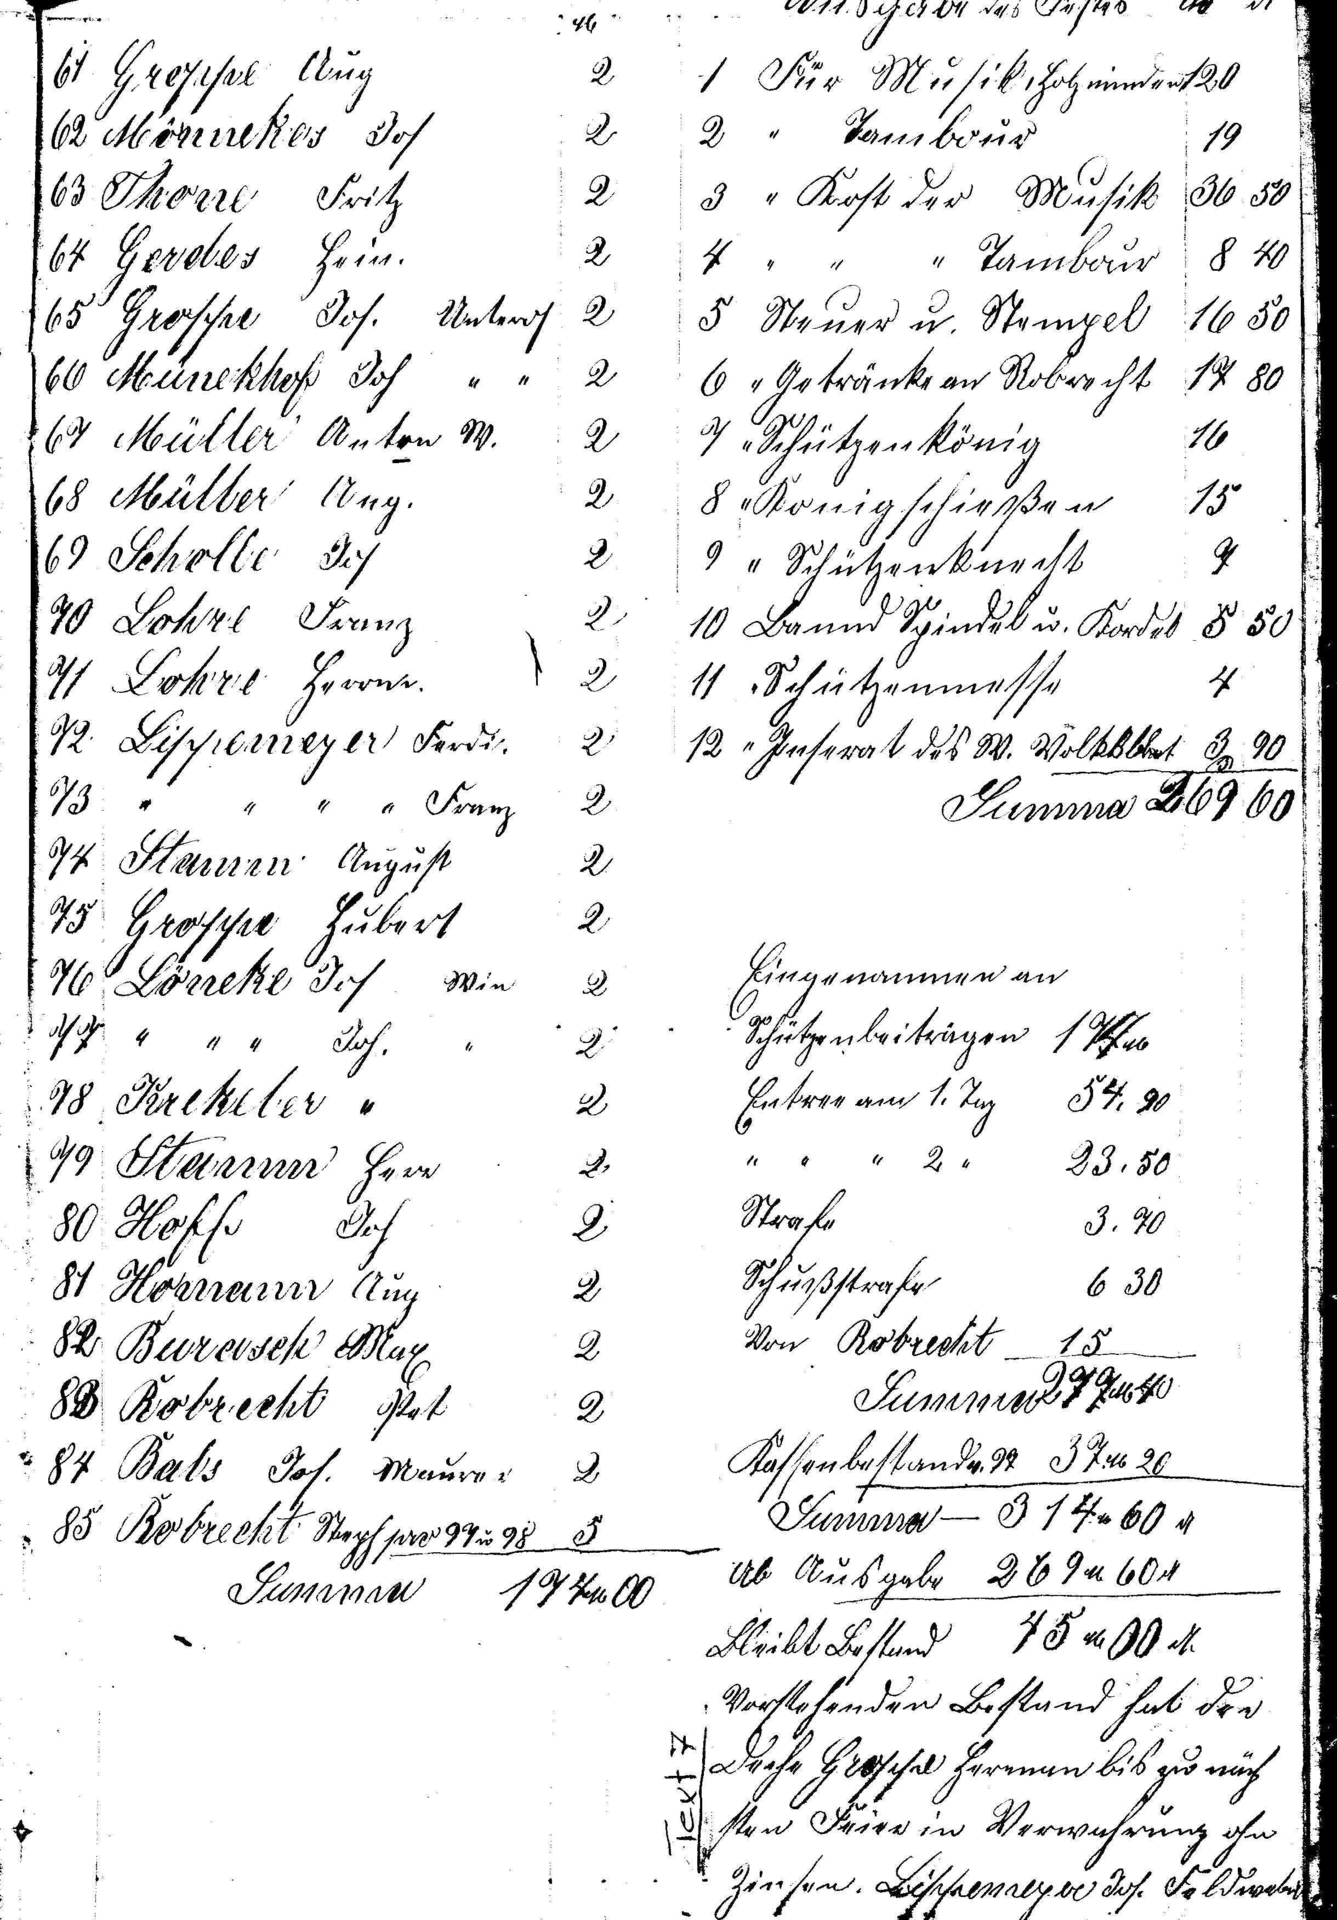 M
61 Groppe Aug 2
62 Mönnekes Jos 2
63 Thone Fritz 2
64 Gerdes Hein. 2
65 Groppe Jos. Unterof 2
66 Münekhof Joh " " 2
67 Müller Anton W. 2
68 Müller Aug. 2
69 Scholle Jos 2
70 Lohre Franz 2
71 Lohre Herm. 2
72 Lippemeyer Ferdi. 2
73 " " " " Franz 2
74 Stamm August 2
75 Groppe Hubert 2
76 Löneke Jos Win 2
77 " " " Joh. " 2
78 Krekeler " 2
79 Stamm Herm 2
80 Hoffs Joh 2
81 Homann Aug 2
82 Burasch Max 2
83 Robrecht Pet 2
84 Bals Jos. Maurer 2
85 Robrecht Steph pro 97 u 98 5
Summa 174 M 00
Ausgabe des Festes M d
1 Für Musik, Holzminden 120
2 " Tambour 19
3 " Kost der Musik 36 50
4 " " " Tambour 8 40
5 Steuer u. Stempel 16 50
6 " Getränke an Robrecht 17 80
7 " Schützenkönig 16
8 " Königschießen 15
9 " Schützenknecht 7
10 Band Spindel u. Kordel 5 50
11 " Schützenmesse 4
12 " Inserat des W. Volksblat 3 90
Summa 269 60
Eingenammen an
Schützenbeiträgen 174 M
Entree am 1. Tag 54. 90
" " " 2 " 23. 50
Strafe 3. 70
Schußstrafe 6 30
Von Robrecht 15
Summa 277 M 40
Kassenbestand v. 97 37 M 20
Summa — 314 M 60 d
Ab Ausgabe 269 M 60 d
Bleibt Bestand 45 M 00 d.
Vorstehenden Bestand hat der
Deche Groppe Herman bis zur näch
sten Feier in Verwahrung ohn
Zinsen. Lippemeyer Jos. Feldwebel
Text 7